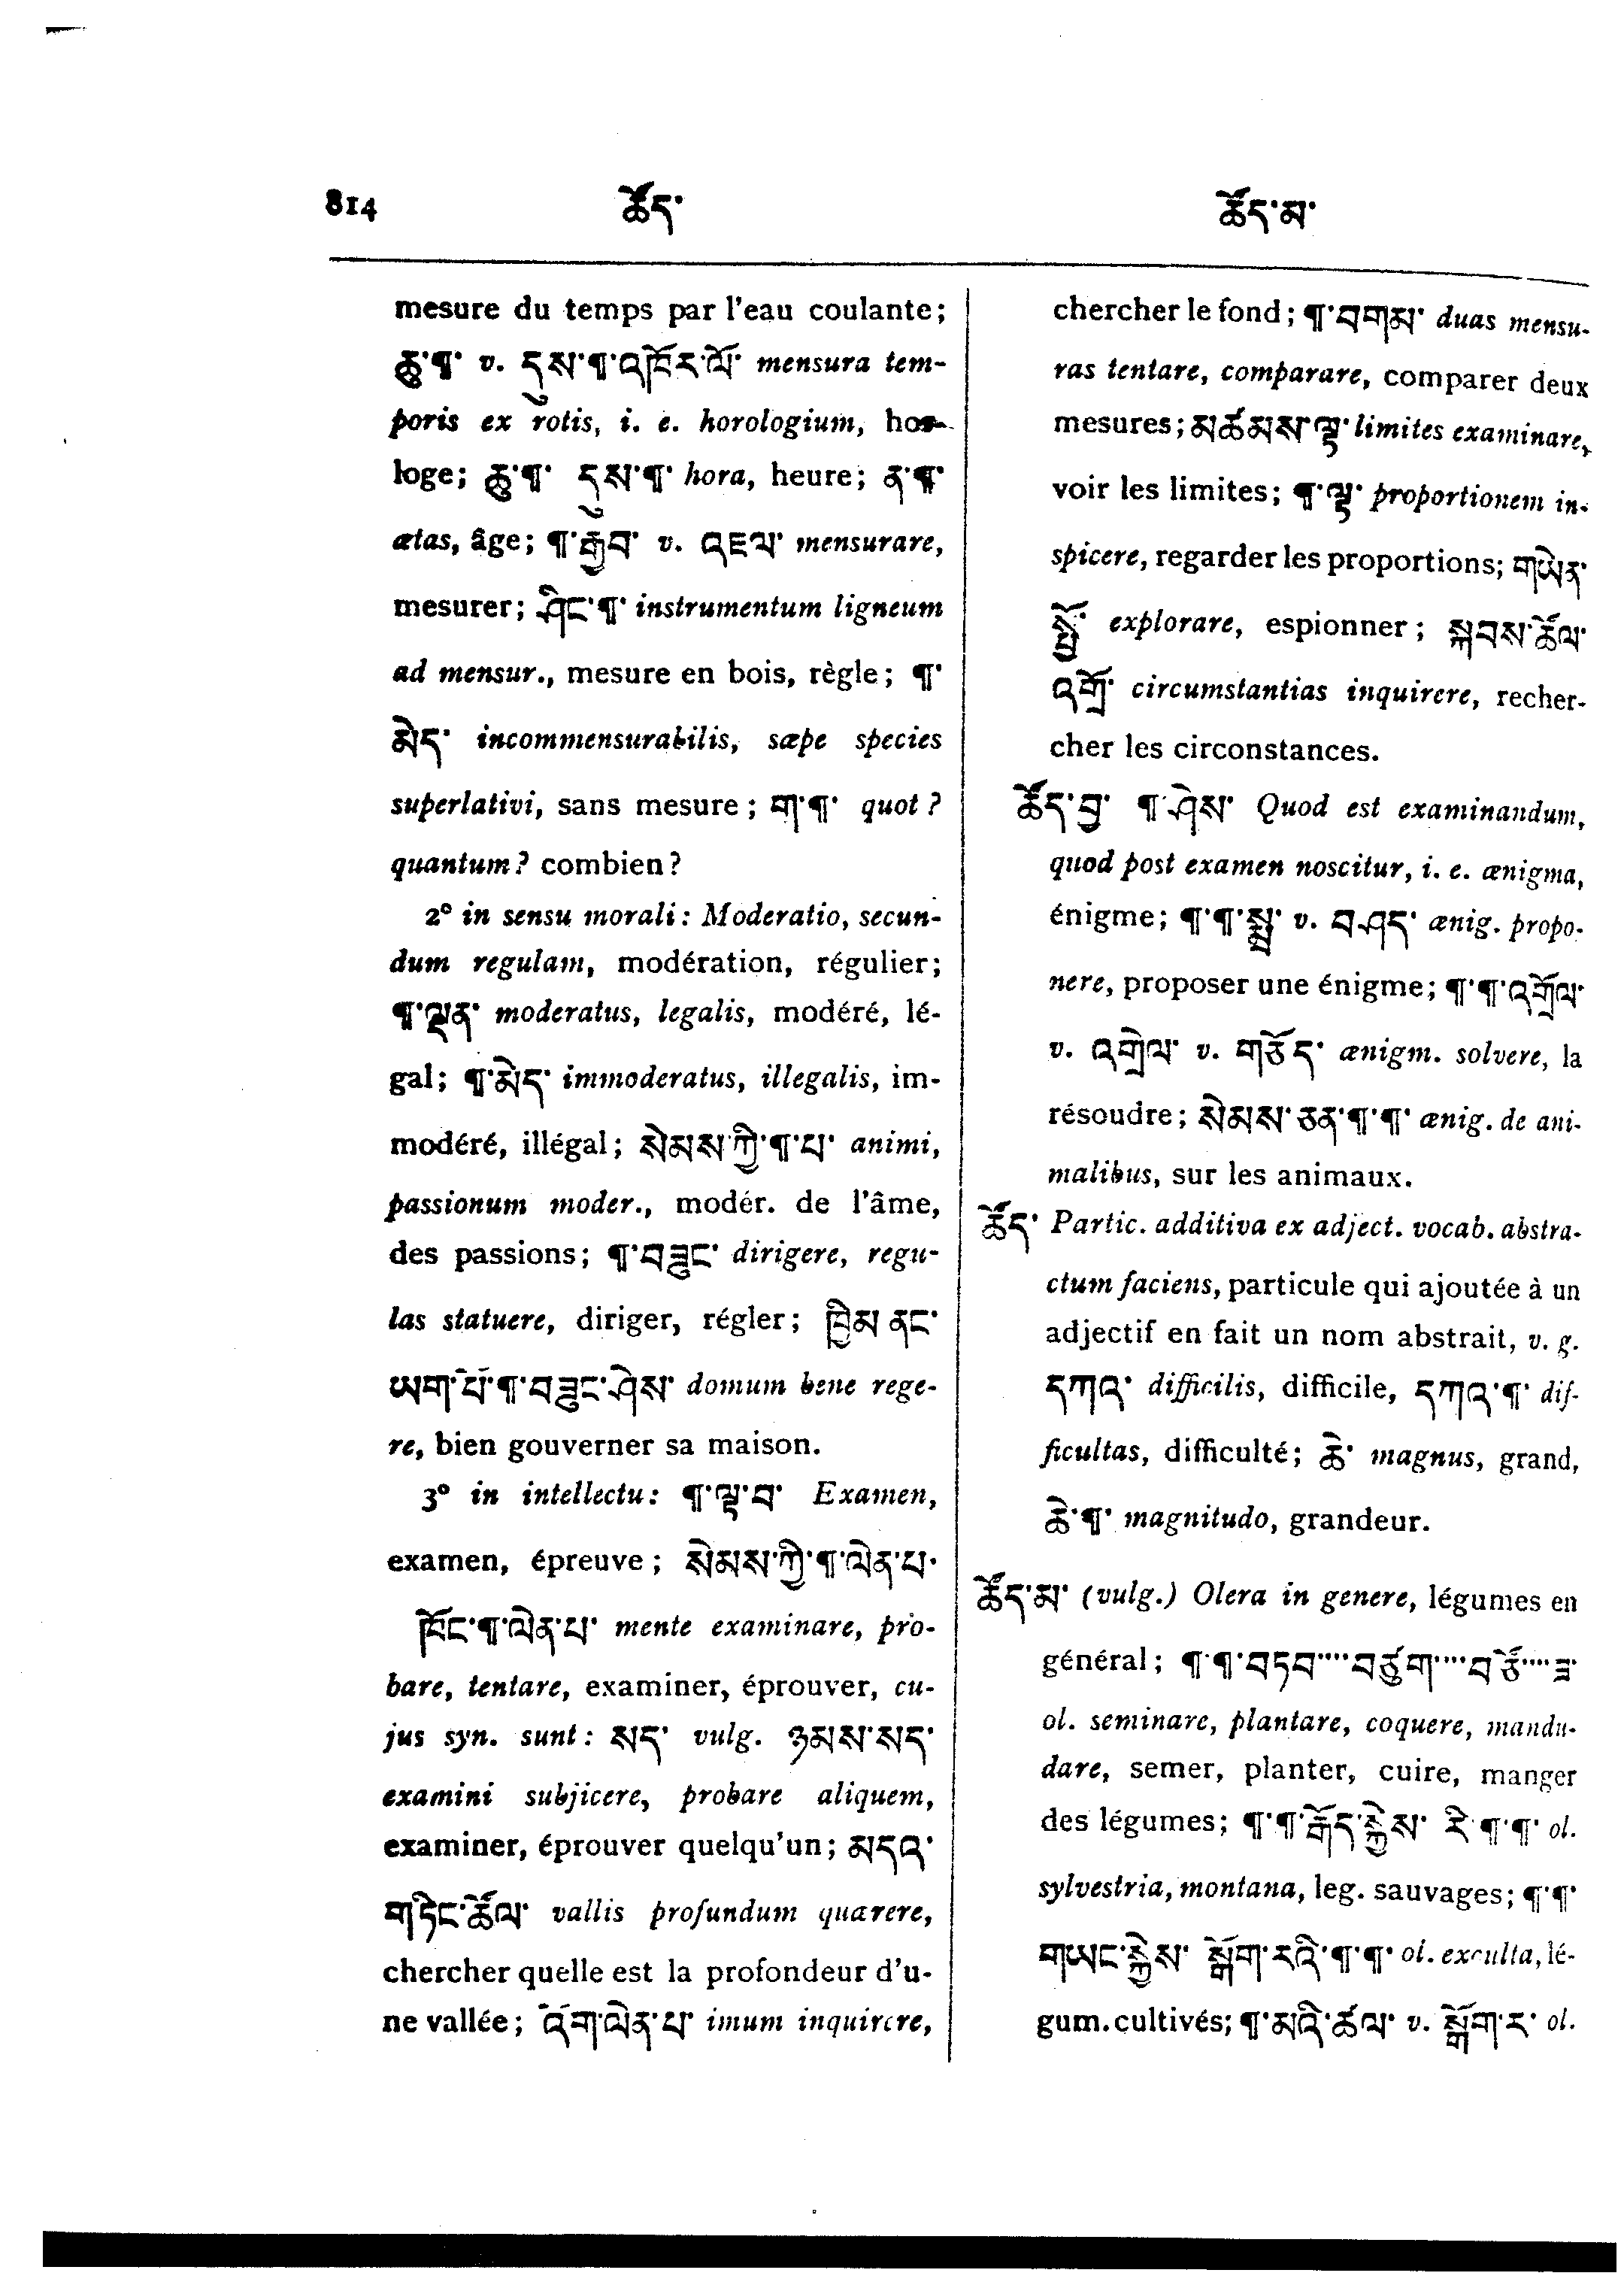 814
ཚོད་
ཚོད་མ་
mesure du temps par l'eau coulante;
ཆུ་¶་ v. དུས་¶་འཁོར་ལོ་ mensura tem-
poris ex rotis, i. e. horologium, hor-
loge; ཆུ་¶་ དུས་¶་ hora, heure; ན་¶་
ætas, âge; ¶་རྒྱབ་ v. འཇལ་ mensurare,
mesurer; ཤིང་¶་ instrumentum ligneum
ad mensur., mesure en bois, règle; ¶་
མེད་ incommensurabilis, sæpe species
superlativi, sans mesure; ག་¶་ quot?
quantum? combien?
2° in sensu morali: Moderatio, secun-
dum regulam, modération, régulier;
¶་ལྡན་ moderatus, legalis, modéré, lé-
gal; ¶་མེད་ immoderatus, illegalis, im-
modéré, illégal; སེམས་ཀྱི་¶་པ་ animi,
passionum moder., modér. de l'âme,
des passions; ¶་བཟུང་ dirigere, regu-
las statuere, diriger, régler; ཁྱིམ་ནང་
ཡག་པོ་¶་བཟུང་ཤེས་ domum bene rege-
re, bien gouverner sa maison.
3° in intellectu: ¶་ལྟ་བ་ Examen,
examen, épreuve; སེམས་ཀྱི་¶་ལེན་པ་
ཁོང་¶་ལེན་པ་ mente examinare, pro-
bare, tentare, examiner, éprouver, cu-
jus syn. sunt: སད་ vulg. ཉམས་སད་
examini subjicere, probare aliquem,
examiner, éprouver quelqu'un; མདའ་
གཏིང་ཚོལ་ vallis profundum quarere,
chercher quelle est la profondeur d'u-
ne vallée; འོག་ལེན་པ་ imum inquirere,
chercher le fond; ¶་བགམ་ duas mensu-
ras tentare, comparare, comparer deux
mesures; མཚམས་ལྟ་ limites examinare,
voir les limites; ¶་ལྟ་ proportionem in-
spicere, regarder les proportions; གཡེན་
སྤྱོ་ explorare, espionner; སྐབས་ཚོལ་
འགྲོ་ circumstantias inquirere, recher-
cher les circonstances.
ཚོད་བྱ་ ¶་ཤེས་ Quod est examinandum,
quod post examen noscitur, i. e. ænigma,
énigme; ¶་¶་སྨྲ་ v. བཤད་ ænig. propo-
nere, proposer une énigme; ¶་¶་འགྲོལ་
v. འགྲེལ་ v. གཅོད་ ænigm. solvere, la
résoudre; སེམས་ཅན་¶་¶་ ænig. de ani-
malibus, sur les animaux.
ཚོད་ Partic. additiva ex adject. vocab. abstra-
ctum faciens, particule qui ajoutée à un
adjectif en fait un nom abstrait, v. g.
དཀའ་ difficilis, difficile, དཀའ་¶་ dif-
ficultas, difficulté; ཆེ་ magnus, grand,
ཆེ་¶་ magnitudo, grandeur.
ཚོད་མ་ (vulg.) Olera in genere, légumes en
général; ¶་¶་བཏབ་་་་བཙུག་་་་བཙོ་་་་ཟ་
ol. seminare, plantare, coquere, mandu-
dare, semer, planter, cuire, manger
des légumes; ¶་¶་རྒོད་སྐྱེས་ རི་¶་¶་ ol.
sylvestria, montana, leg. sauvages; ¶་¶་
གཡང་སྐྱེས་ སྒོག་རའི་¶་¶་ ol. exculta, lé-
gum. cultivés; ¶་མའི་ཚལ་ v. སྒོག་ར་ ol.